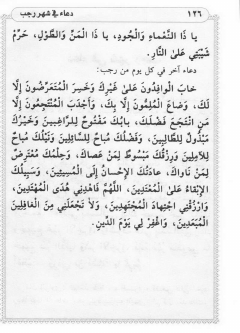 ١٢٦ دعاء في شهر رجب
يا ذَا النَّعْماءِ وَالْجُودِ، يا ذَا الْمَنِّ وَالطَّوْلِ، حَرِّمْ
شَيْبَتِي عَلَى النَّارِ.
دعاء آخر في كل يوم من رجب:
خابَ الْوافِدُونَ عَلى غَيْرِكَ وَخَسِرَ الْمُتَعَرِّضُونَ إِلَّا
لَكَ، وَضاعَ الْمُلِمُّونَ إِلَّا بِكَ، وَأَجْدَبَ الْمُنْتَجِعُونَ إِلَّا
مَنِ انْتَجَعَ فَضْلَكَ، بابُكَ مَفْتُوحٌ لِلرَّاغِبِينَ وَخَيْرُكَ
مَبْذُولٌ لِلطَّالِبِينَ، وَفَضْلُكَ مُباحٌ لِلسَّائِلِينَ وَنَيْلُكَ مُتاحٌ
لِلْآمِلِينَ وَرِزْقُكَ مَبْسُوطٌ لِمَنْ عَصاكَ، وَحِلْمُكَ مُعْتَرِضٌ
لِمَنْ ناواكَ، عادَتُكَ الْإِحْسانُ إِلَى الْمُسِيئِينَ، وَسَبِيلُكَ
الْإِبْقاءُ عَلَى الْمُعْتَدِينَ، اللَّهُمَّ فَاهْدِنِي هُدَى الْمُهْتَدِينَ،
وَارْزُقْنِي اجْتِهادَ الْمُجْتَهِدِينَ، وَلا تَجْعَلْنِي مِنَ الْغافِلِينَ
الْمُبْعَدِينَ، وَاغْفِرْ لِي يَوْمَ الدِّينِ.